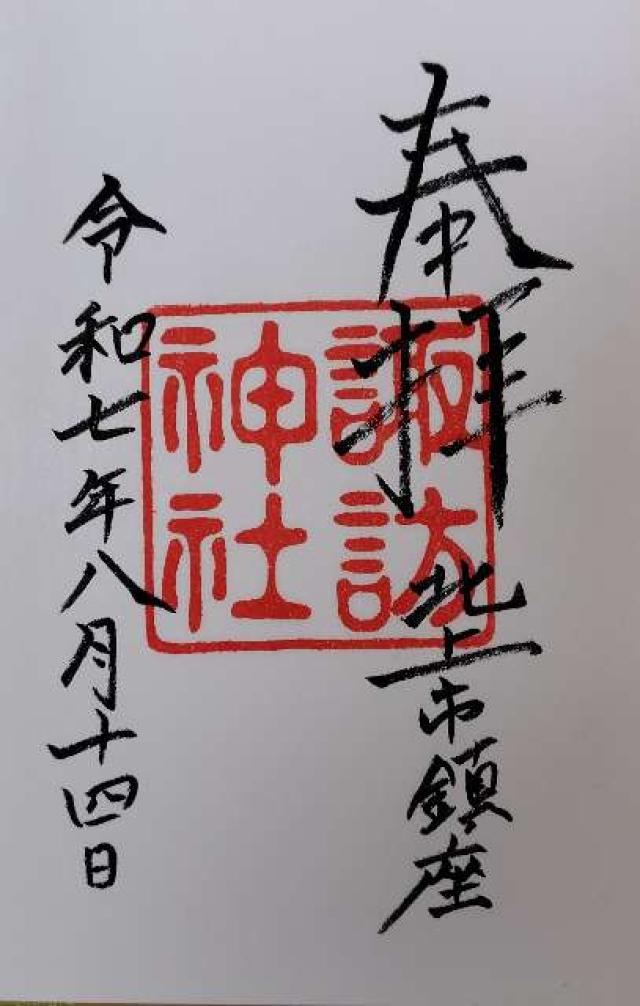 奉拝
北上市鎮座
諏訪
神社
令和七年八月十四日